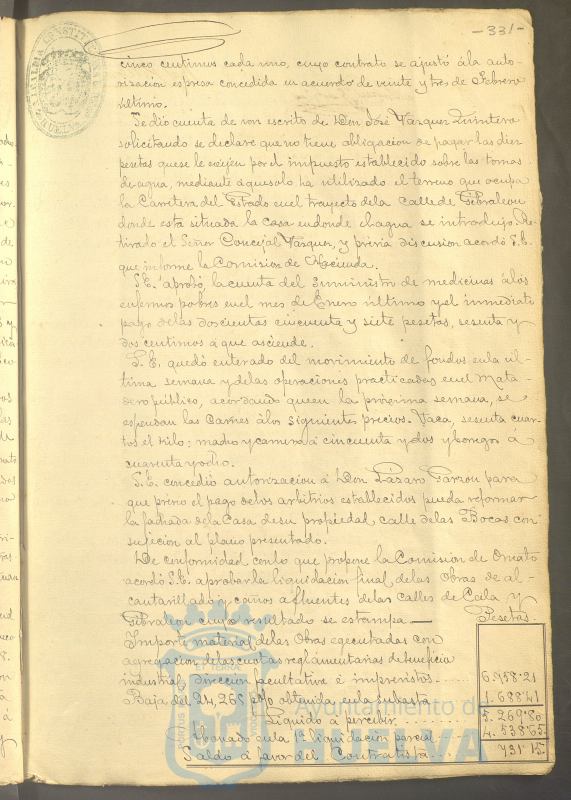 -331-
cinco centimos cada uno, cuyo contrato se ajustó á la auto-
rización espresa concedida en acuerdo de veinte y tres de Febrero
último.
Se dió cuenta de un escrito de Don José Vazquez Quintero
solicitando se declare que no tiene obligacion de pagar las diez
pesetas que se le exijen por el impuesto establecido sobre las tomas
de agua, mediante á que solo ha utilizado el terreno que ocupa
la Carretera del Estado en el trayecto de la calle de Gibraleon
donde está situada la casa en donde el agua se introdujo. Re-
tirado el Señor Concejal Vazquez, y previa discusion acordó S.E.
que informe la Comision de Hacienda.
S.E. aprobó, la cuenta del suministro de medicinas á los
enfermos pobres en el mes de Enero último y el inmediato
pago de las doscientas cincuenta y siete pesetas, sesenta y
dos centimos á que asciende.
S.E. quedó enterado del movimiento de fondos en la úl-
tima semana y de las operaciones practicadas en el Mata-
dero público, acordando que en la próxima semana, se
espendan las Carnes á los siguientes precios. Vaca, sesenta cuar-
tos el kilo: macho y carnero á cincuenta y dos y borregos á
cuarenta y ocho.
S.E. concedió autorizacion á Don Lázaro Garzon para
que previo el pago de los arbitrios establecidos pueda reformar
la fachada de la Casa de su propiedad, calle de las Bocas con
sujecion al plano presentado.
De conformidad con lo que propone la Comision de Ornato
acordó S.E. aprobar la liquidacion final de las Obras de al-
cantarillado y caños afluentes de las calles de Cala y
Gibraleon cuyo resultado se estampa — Pesetas.
Importe material de las Obras egecutadas con
agregacion de las cuotas reglamentarias de beneficio
industrial, direccion facultativa é imprevistos. 6.958'21
Baja del 24,265 p% obtenida en la subasta. 1.688'41
Líquido á percibir. 5.269'80
Abonado en la 1ª liquidacion parcial 4.538'65
Saldo á favor del Contratista. 731'15
Ayuntamiento de
HUELVA